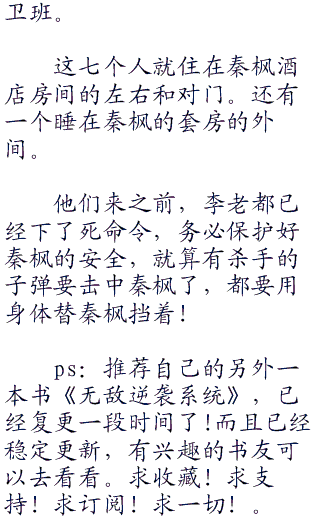 卫班。
这七个人就住在秦枫酒
店房间的左右和对门。还有
一个睡在秦枫的套房的外
间。
他们来之前，李老都已
经下了死命令，务必保护好
秦枫的安全，就算有杀手的
子弹要击中秦枫了，都要用
身体替秦枫挡着！
ps：推荐自己的另外一
本书《无敌逆袭系统》，已
经复更一段时间了！而且已经
稳定更新，有兴趣的书友可
以去看看。求收藏！求支
持！求订阅！求一切！。